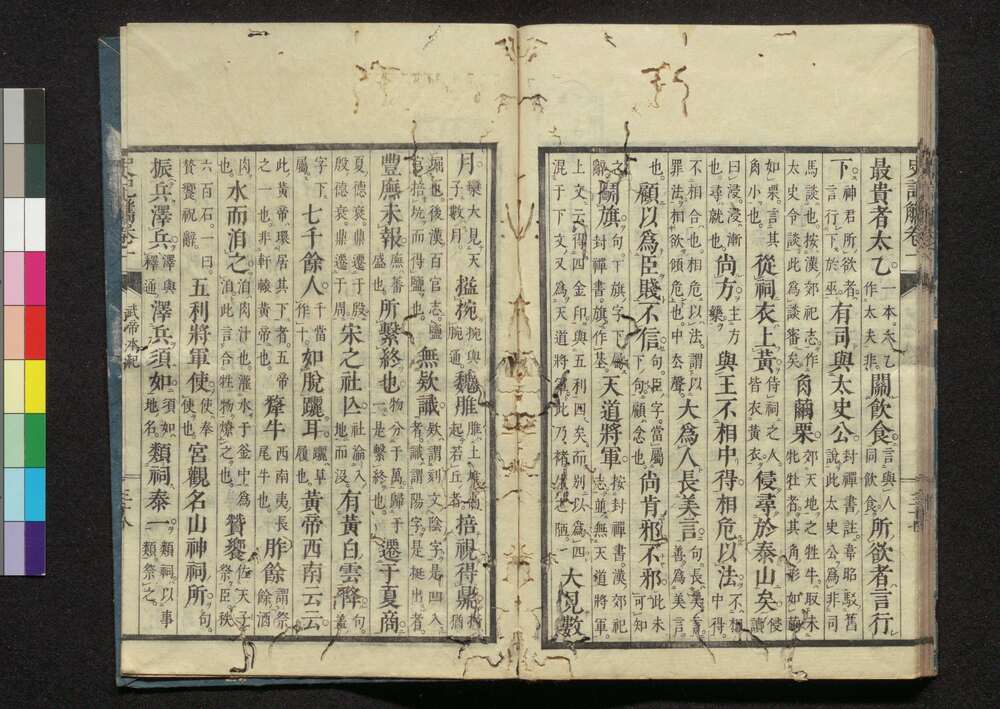 最貴者太乙一本太乙作太夫非關飲食言與人同飲食所欲者言行
下神君所欲者言行下於巫有司與太史公封禪書註韋昭駁舊說此太史公爲非司
馬談也按漢郊祀志作太史令談此爲談審矣角繭栗天地之牲牛取未牝牡者其角形如繭
如栗言其角小也從祠衣上黃侍祠之人皆衣黃衣侵尋於泰山矣侵尋讀
曰浸浸漸也尋就也尚方主方藥與王不相中得相危以法不相中不相得
不相合也相危以法謂以罪法相欲傾危也中去聲大爲人長美言句長美言善爲美言
也顧以爲臣賤不信句臣字當屬下句顧念也尚肯邪不邪此未可知
之鬭旗句下旗字下屬封禪書旗作棊天道將軍按封禪書漢郊祀志並無天道將軍
上文云得四金印與五利四矣而別以爲四
混于下文又爲天道將軍此乃褚先生之陋一大見數
月欒大見天子數月搤捥捥與腕通魏脽脽土堆高起若丘者掊視得鼎掊猶
掘也後漢百官志鹽官掊坑而得鹽也無欵識欵謂刻文陰字是凹入者識謂陽字是挺出者
豐廡未報廡蕃盛也所繫終也物分于萬歸于一是繫終也遷于夏商
夏德衰鼎遷于殷殷德衰鼎遷于周宋之社亾社淪入地而沒有黃白雲降句蓋
字下屬七千餘人千當作十如脫躧耳躧草履也黃帝西南云云
此黃帝環居其下者五帝之一也非軒轅黃帝也犛牛西南夷長尾牛也胙餘謂祭餘酒
肉也水而洎之洎肉汁也灌水于釜中爲洎此言合牲物燎之也贊饗佐天子祭臣秩
六百石一曰贊饗祝辭五利將軍使使奉使也宮觀名山神祠所句
振兵澤兵澤與釋通澤兵須如須如地名類祠泰一類祠以事類祭之
史記觿卷一
武帝本紀
三十八
史記觿卷一